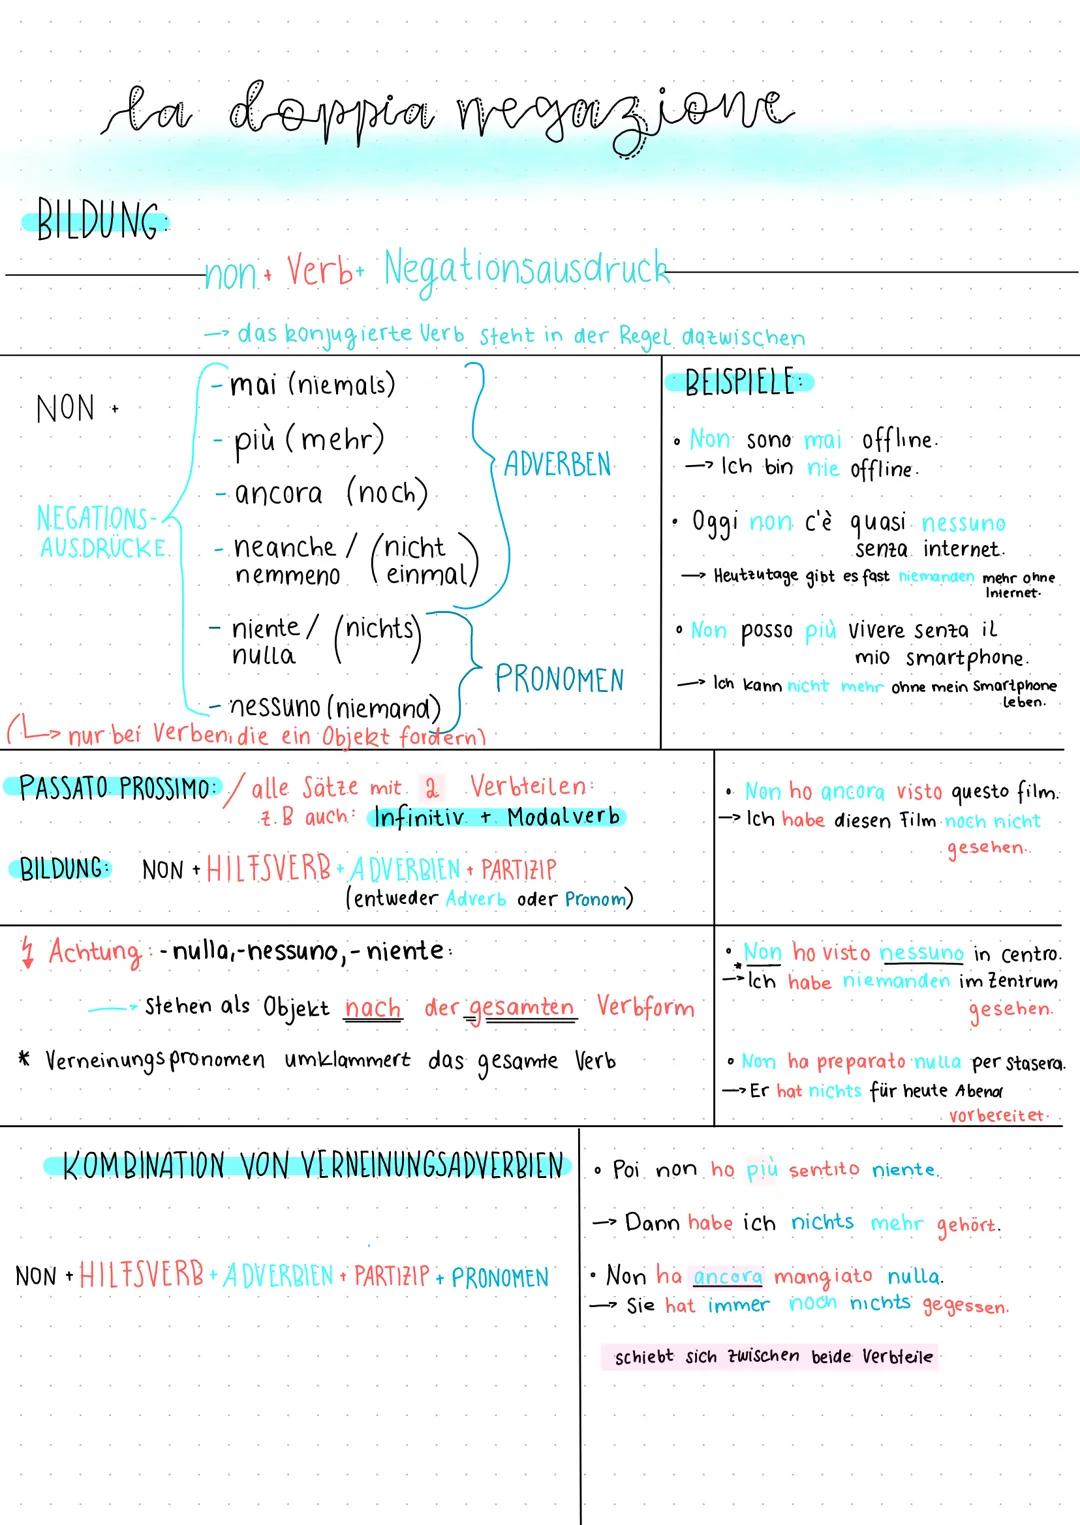 la doppia negazione
BILDUNG:
non + Verb + Negationsausdruck
→ das konjugierte Verb steht in der Regel dazwischen
NON +
NEGATIONS-
AUSDRÜCKE
- mai (niemals)
- più (mehr)
- ancora (noch)
- neanche / (nicht
nemmeno einmal)
ADVERBEN
- niente / (nichts)
nulla
- nessuno (niemand)
PRONOMEN
(↳ nur bei Verben, die ein Objekt fordern)
BEISPIELE:
• Non sono mai offline.
→ Ich bin nie offline.
• Oggi non c'è quasi nessuno
senza internet.
→ Heutzutage gibt es fast niemanden mehr ohne
Internet.
• Non posso più vivere senza il
mio smartphone.
→ Ich kann nicht mehr ohne mein Smartphone
leben.
PASSATO PROSSIMO: / alle Sätze mit 2 Verbteilen:
z.B auch: Infinitiv + Modalverb
BILDUNG: NON + HILFSVERB + ADVERBIEN + PARTIZIP
(entweder Adverb oder Pronom)
• Non ho ancora visto questo film.
→ Ich habe diesen Film noch nicht
gesehen.
Achtung: - nulla, - nessuno, - niente:
→ stehen als Objekt nach der gesamten Verbform
* Verneinungspronomen umklammert das gesamte Verb
• Non ho visto nessuno in centro.
* → Ich habe niemanden im Zentrum
gesehen.
• Non ha preparato nulla per stasera.
→ Er hat nichts für heute Abend
vorbereitet.
KOMBINATION VON VERNEINUNGSADVERBIEN
NON + HILFSVERB + ADVERBIEN + PARTIZIP + PRONOMEN
• Poi non ho più sentito niente.
→ Dann habe ich nichts mehr gehört.
• Non ha ancora mangiato nulla.
→ Sie hat immer noch nichts gegessen.
schiebt sich zwischen beide Verbteile